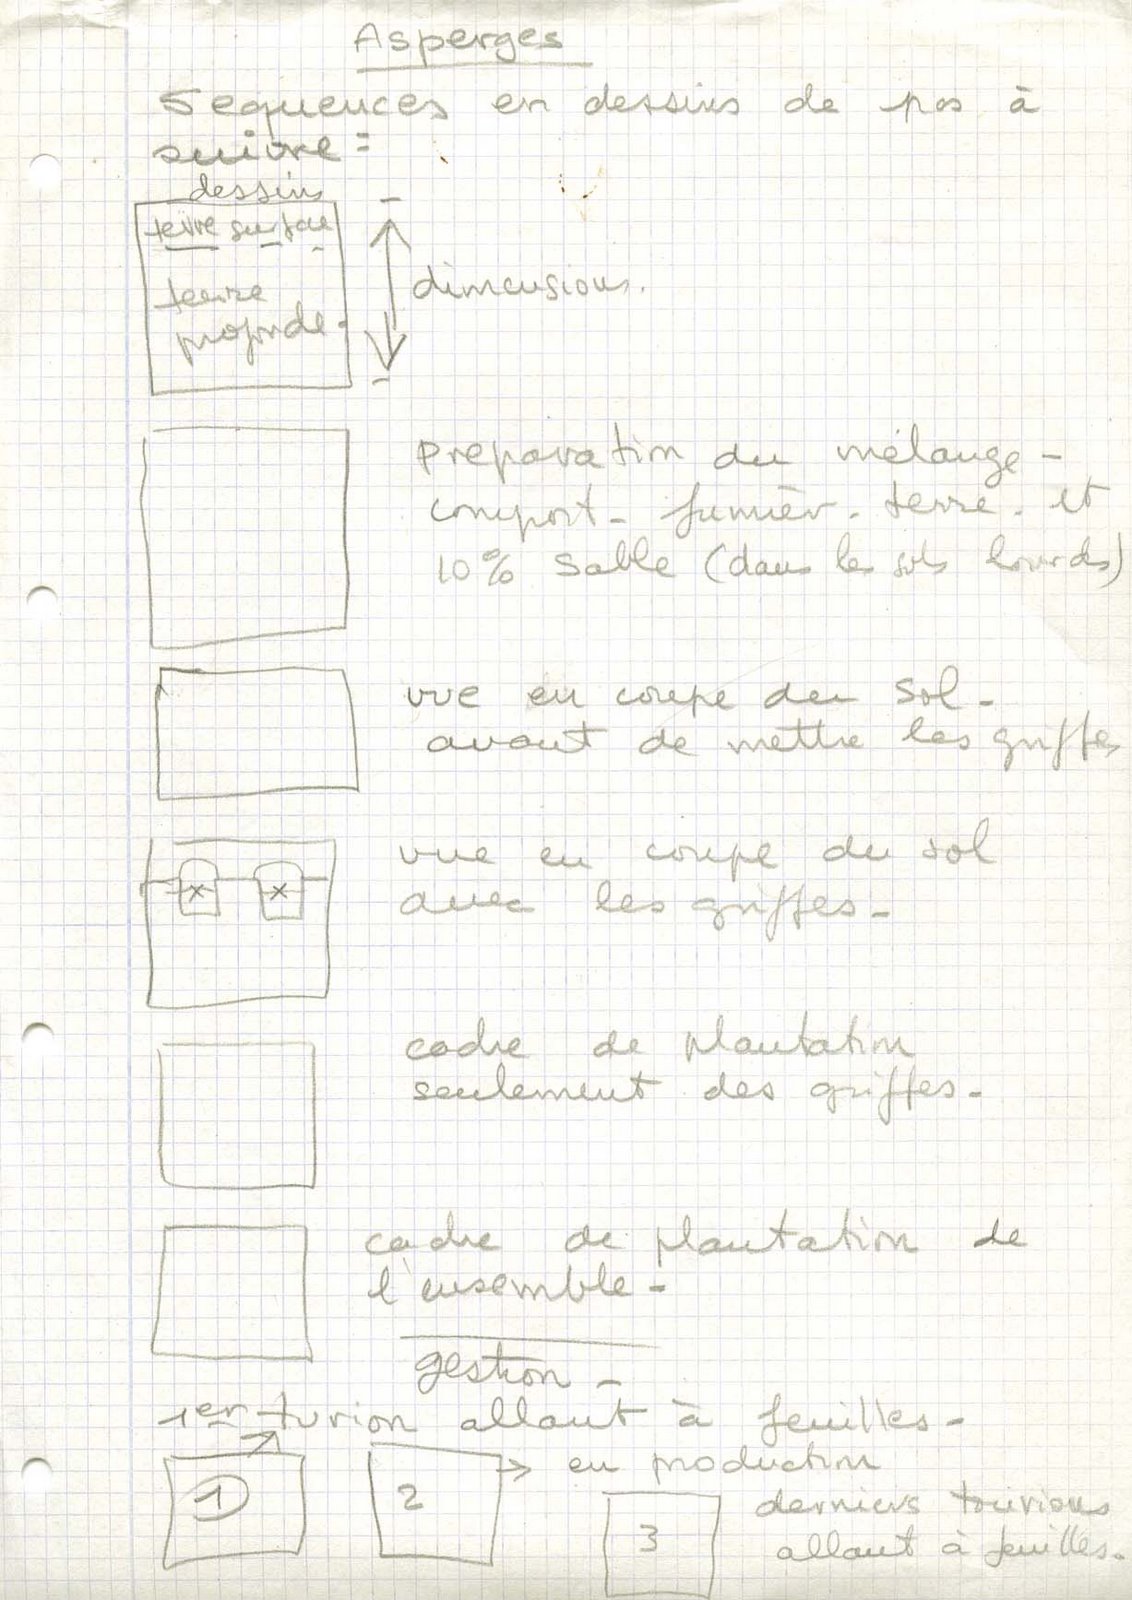 Asperges
Sequences en dessins de pas à
suivre =
dessins
terre surface
terre
profonde.
dimensions.
Préparation du mélange -
compost - fumier. terre. et
10% Sable (dans les sols lourds)
vue en coupe du sol -
avant de mettre les griffes
x x
vue en coupe du sol
avec les griffes -
cadre de plantation
seulement des griffes -
cadre de plantation de
l'ensemble -
gestion -
1er turion allant à feuilles -
1
2
→ en production
3
derniers tourions
allant à feuilles.